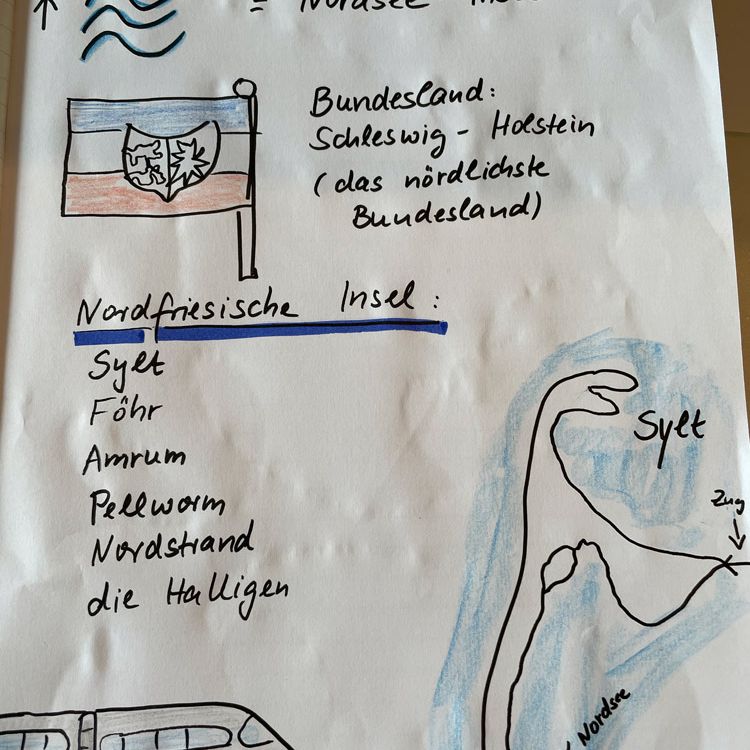 = Nordsee
Bundesland:
Schleswig - Holstein
(das nördlichste
Bundesland)
Nordfriesische Insel:
Sylt
Föhr
Amrum
Pellworm
Nordstrand
die Halligen
Sylt
Zug
Nordsee